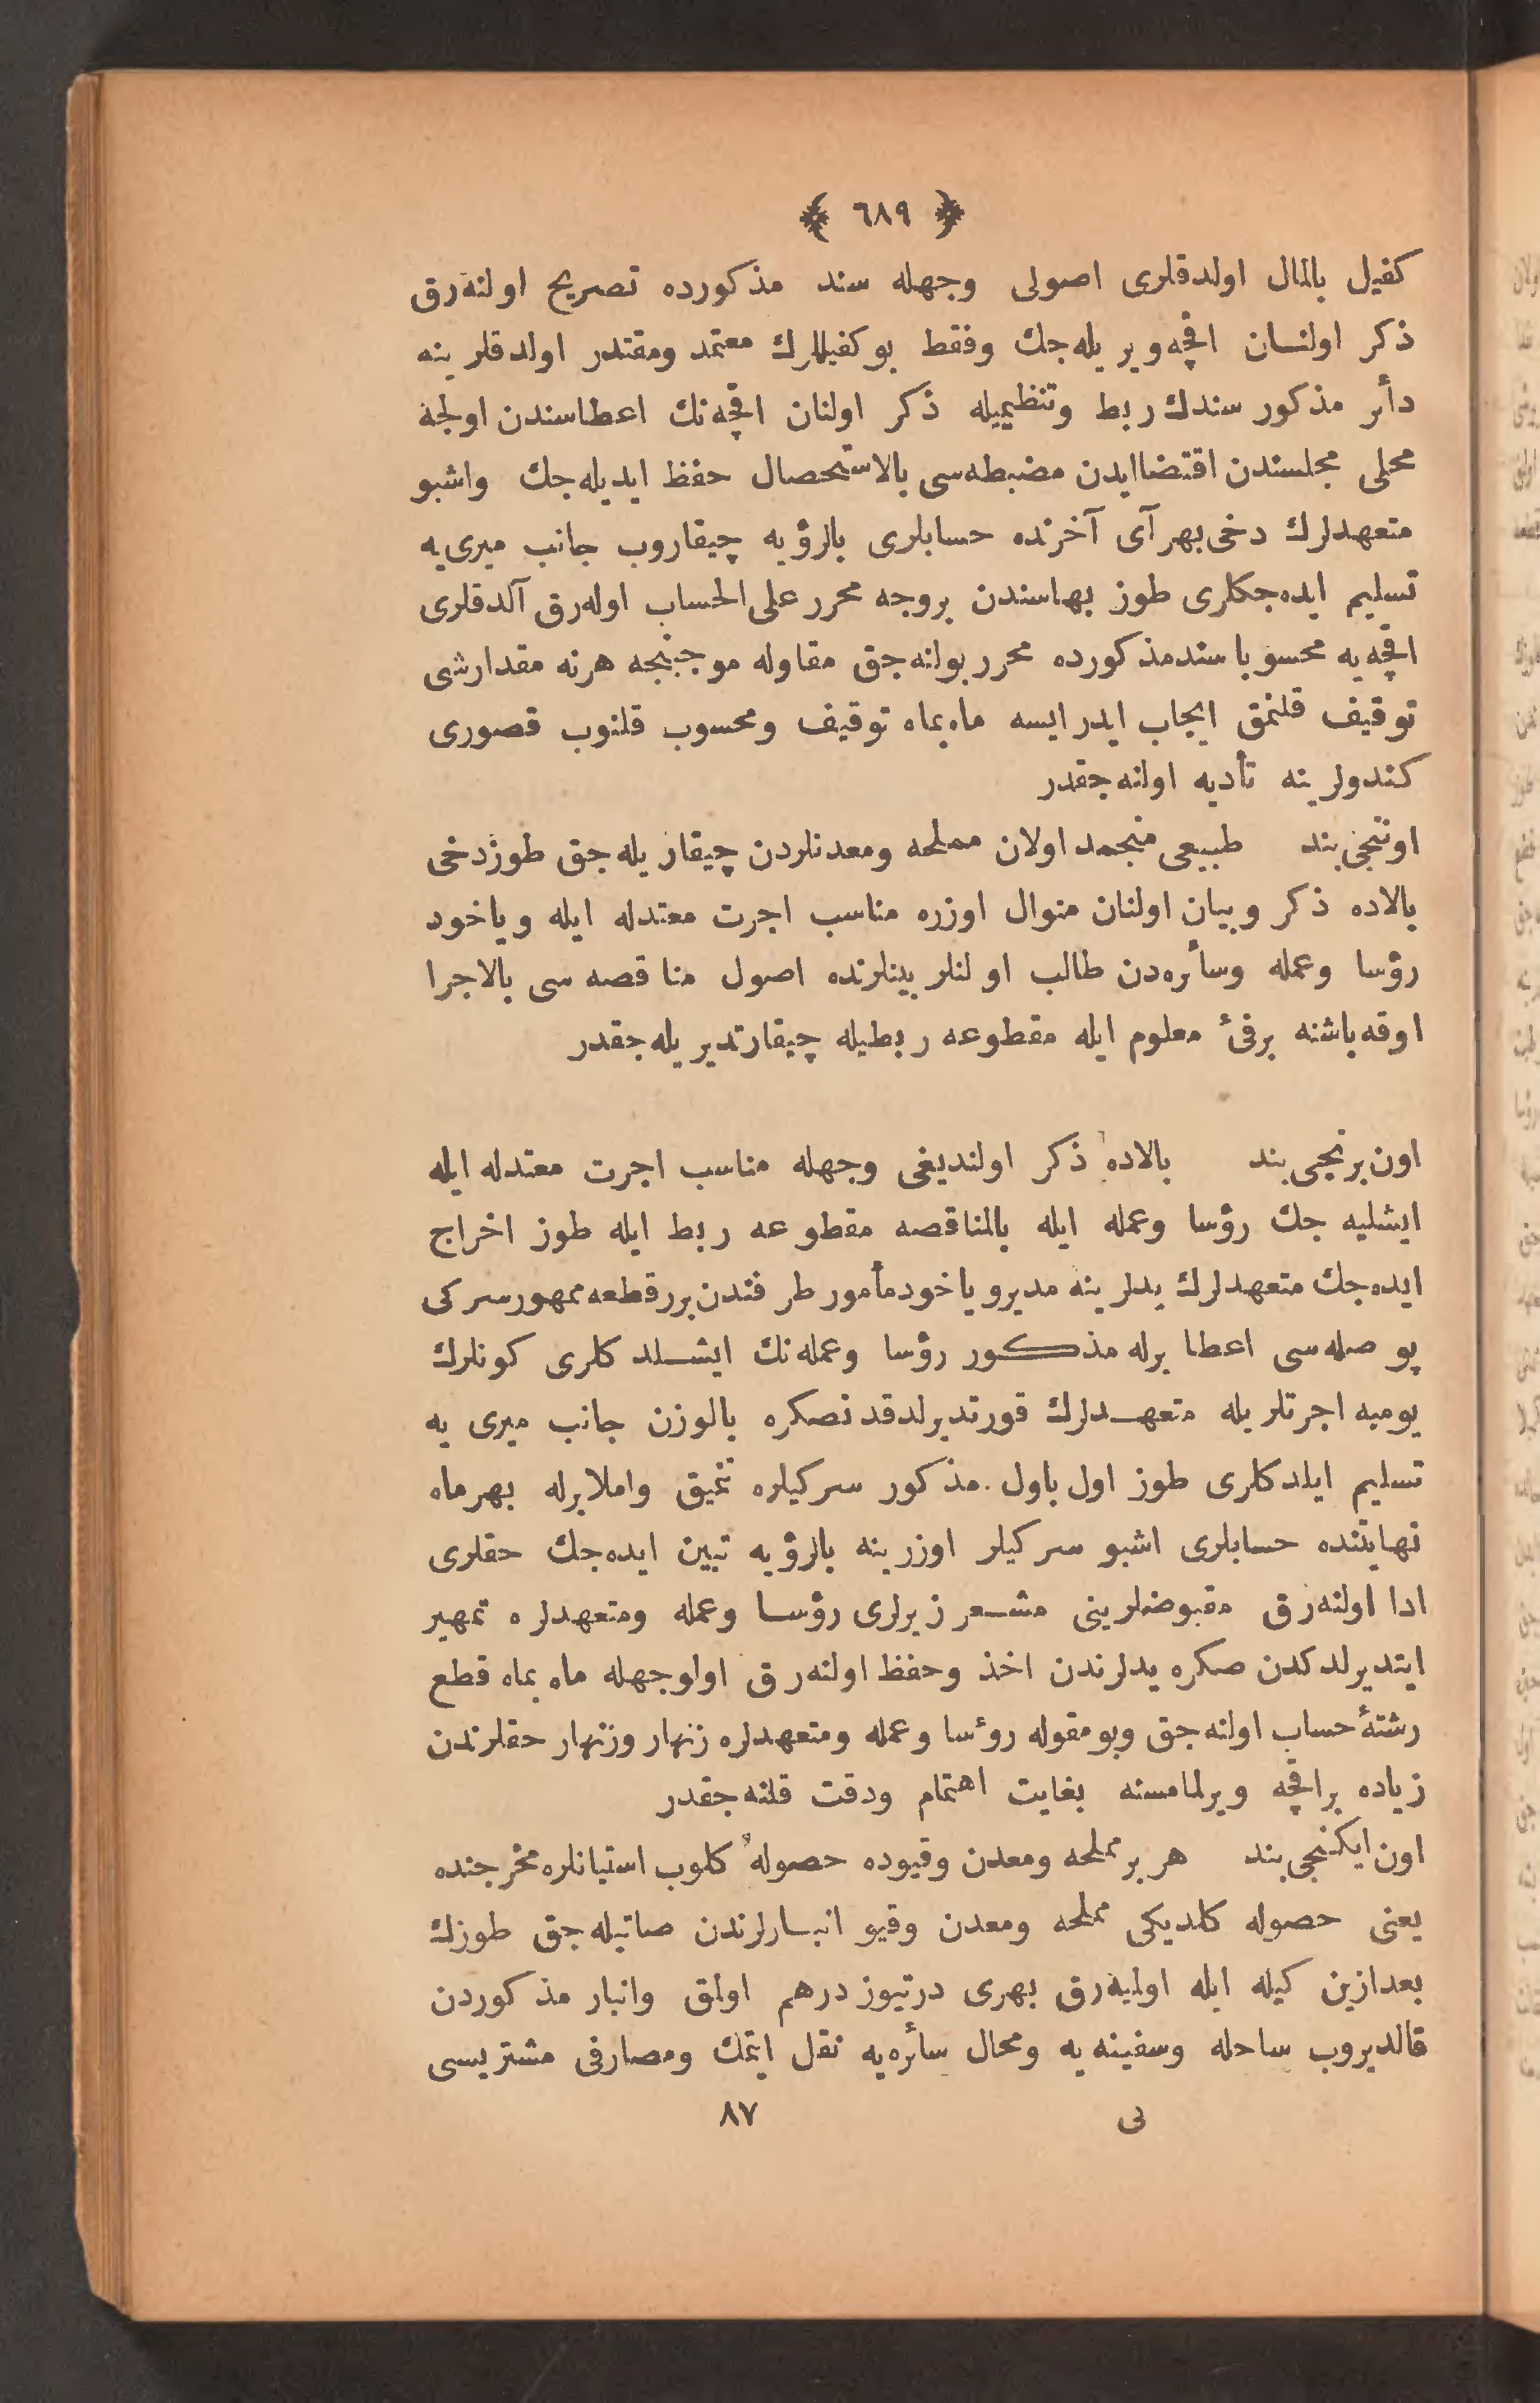 ﴿ ٦٨٩ ﴾
كفيل بالمال اولدقلرى اصولى وجهله سند مذكورده تصريح اولنه‌رق
ذكر اولنان اقچه ويريله‌جك وفقط بو كفيللرك معتمد ومقتدر اولدقلرينه
دأئر مذكور سندك ربط وتنظيميله ذكر اولنان اقچه‌نك اعطاسندن اولجه
محلى مجلسندن اقتضا ايدن مضبطه‌سى بالاستحصال حفظ ايديله‌جك واشبو
متعهدلرك دخى بهر آى آخرنده حسابلرى بالرؤيه چيقاروب جانب ميرى‌يه
تسليم ايده‌جكلرى طوز بهاسندن بروجه محرر على الحساب اوله‌رق آلدقلرى
اقچه‌يه محسوبا سند مذكورده محرر بولنه‌جق مقاوله موجبنجه هرنه مقدارشى
توقيف قلنمق ايجاب ايدر ايسه ماه بماه توقيف ومحسوب قلنوب قصورى
كندولرينه تأديه اولنه‌جقدر
اوننجى بند طبيعى منجمد اولان مملحه ومعدنلردن چيقاريله‌جق طوز دخى
بالاده ذكر وبيان اولنان منوال اوزره مناسب اجرت معتدله ايله وياخود
رؤسا وعمله وسأئره‌دن طالب اولنلر بينلرنده اصول مناقصه‌سى بالاجرا
اوقه باشنه برفئ معلوم ايله مقطوعه ربطيله چيقارتديريله‌جقدر
اون برنجى بند بالاده ذكر اولنديغى وجهله مناسب اجرت معتدله ايله
ايشليه‌جك رؤسا وعمله ايله بالمناقصه مقطوعه ربط ايله طوز اخراج
ايده‌جك متعهدلرك يدلرينه مدير وياخود مأمور طرفندن برر قطعه ممهور سركى
پوصله‌سى اعطا برله مذكور رؤسا وعمله‌نك ايشلدكلرى كونلرك
يوميه اجرتلريله متعهدلرك قورتديرلدقدنصكره بالوزن جانب ميرى‌يه
تسليم ايلدكلرى طوز اول باول مذكور سركيلره تنميق واملا برله بهر ماه
نهايتنده حسابلرى اشبو سركيلر اوزرينه بالرؤيه تبين ايده‌جك حقلرى
ادا اولنه‌رق مقبوضلرينى مشعر زيرلرى رؤسا وعمله ومتعهدلره تمهير
ايتديرلدكدن صكره يدلرندن اخذ وحفظ اولنه‌رق اولوجهله ماه بماه قطع
رشتهٔ حساب اولنه‌جق وبومقوله روٴسا وعمله ومتعهدلره زنهار وزنهار حقلرندن
زياده براقچه ويرلمامسنه بغايت اهتمام ودقت قلنه‌جقدر
اون ايكنجى بند هر بر مملحه ومعدن وقيوده حصوله كلوب استيانلره مخرجنده
يعنى حصوله كلديكى مملحه ومعدن وقيو انبارلرندن صاتيله‌جق طوزك
بعدازين كيله ايله اوليه‌رق بهرى درتيوز درهم اولمق وانبار مذكوردن
قالديروب ساحله وسفينه‌يه ومحال سأئره‌يه نقل ايتمك ومصارفى مشتريسى
نى ٨٧